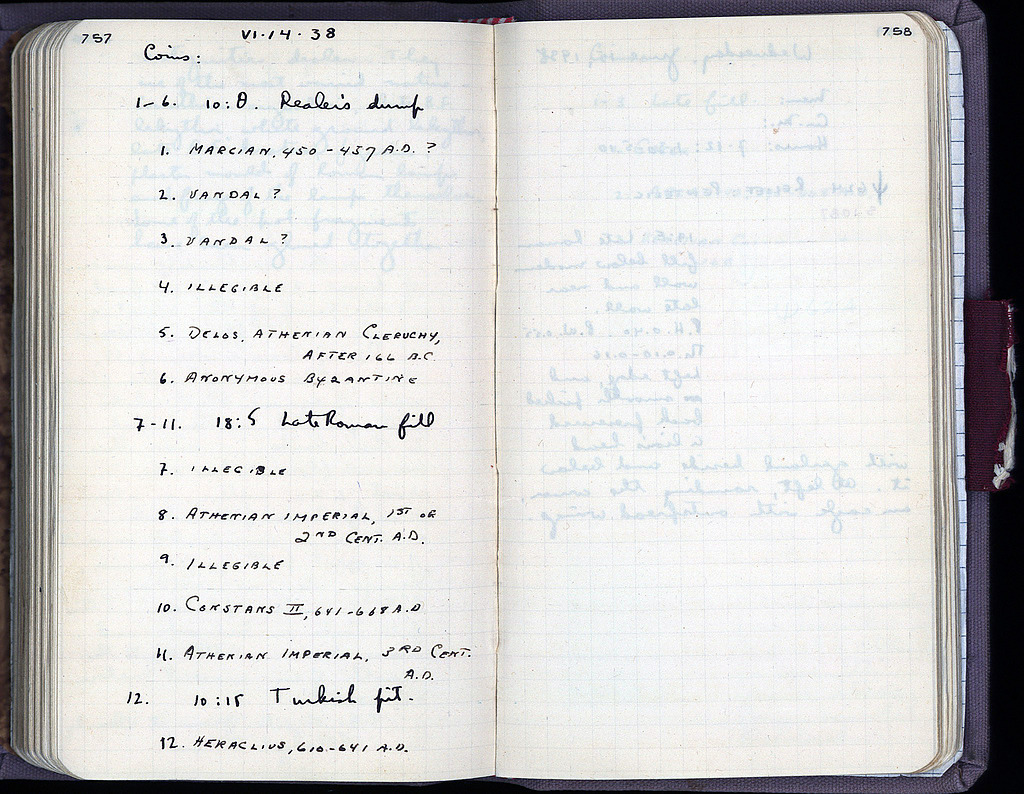 757
VI·14·38
Coins:
1-6. 10:Θ. Realeis dump
1. MARCIAN, 450-457 A.D. ?
2. VANDAL ?
3. VANDAL ?
4. ILLEGIBLE
5. DELOS, ATHENIAN CLERUCHY,
AFTER 166 B.C.
6. ANONYMOUS BYZANTINE
7-11. 18:5 Late Roman fill
7. ILLEGIBLE
8. ATHENIAN IMPERIAL, 1ST OR
2ND CENT. A.D.
9. ILLEGIBLE
10. CONSTANS II, 641-668 A.D
11. ATHENIAN IMPERIAL, 3RD CENT.
A.D.
12. Turkish pit.
12. HERACLIUS, 610-641 A.D.
758